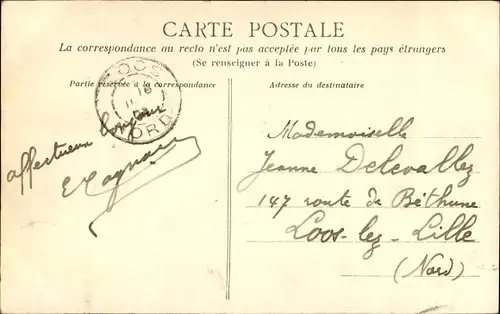 CARTE POSTALE
La correspondance au recto n'est pas acceptée par tous les pays étrangers
(Se renseigner à la Poste)
Partie réservée à la correspondance
Adresse du destinataire
LOOS
18
NORD
affectueux bonjour
Mademoiselle
Jeanne Delevallez
147 route de Béthune
Loos-lez-Lille
(Nord)